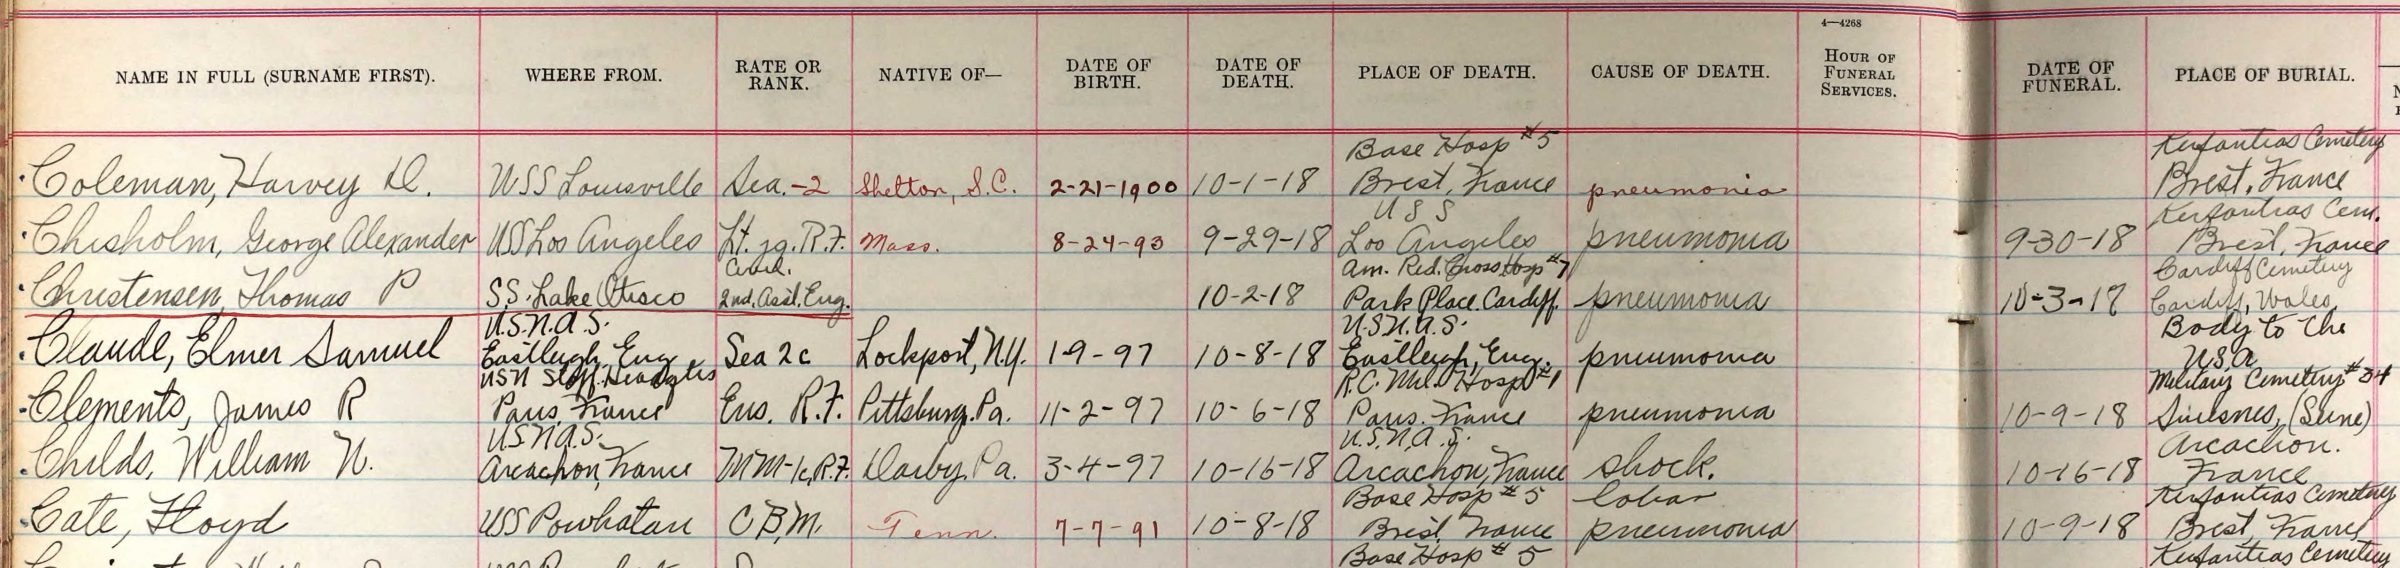 4—4268
NAME IN FULL (SURNAME FIRST). WHERE FROM. RATE OR RANK. NATIVE OF— DATE OF BIRTH. DATE OF DEATH. PLACE OF DEATH. CAUSE OF DEATH. HOUR OF FUNERAL SERVICES. DATE OF FUNERAL. PLACE OF BURIAL.
Base Hosp #5 Kerfautras Cemetery
Coleman, Harvey D. USS Louisville Sea.-2 Shelton, S.C. 2-21-1900 10-1-18 Brest, France pneumonia Brest, France
USS Kerfautras Cem.
Chisholm, George Alexander USS Los Angeles Lt. jg. R.F. Mass. 8-24-93 9-29-18 Los Angeles pneumonia 9-30-18 Brest, France
Civil. Am. Red. Cross Hosp #7 Cardiff Cemetery
Christensen, Thomas P S.S. Lake Otisco 2nd. Asst. Eng. 10-2-18 Park Place. Cardiff. pneumonia 10-3-18 Cardiff, Wales,
U.S.N.A.S. U.S.N.A.S. Body to the
Claude, Elmer Samuel Eastleigh, Eng Sea 2c Lockport, N.Y. 1-9-97 10-8-18 Eastleigh, Eng. pneumonia U.S.A.
USN Staff. Headqtrs R.C. Mil. Hosp #1 Military Cemetery #34
Clements, James R Paris, France Ens. R.F. Pittsburg, Pa. 11-2-97 10-6-18 Paris. France pneumonia 10-9-18 Suresnes, (Seine)
U.S.N.A.S. U.S.N.A.S. Arcachon.
Childs, William N. Arcachon, France MM-1c, R.F. Darby, Pa. 3-4-97 10-16-18 Arcachon, France shock. 10-16-18 France
Base Hosp #5 Lobar Kerfautras Cemetery
Cate, Floyd USS Powhatan C.B.M. Tenn. 7-7-91 10-8-18 Brest, France pneumonia 10-9-18 Brest, France
Base Hosp #5 Kerfautras Cemetery